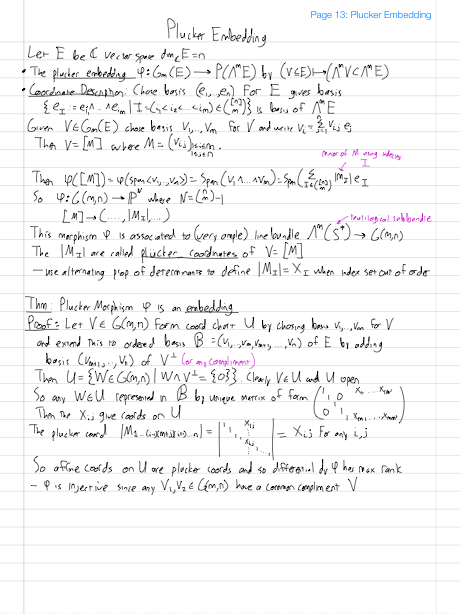 Page 13: Plucker Embedding
Plucker Embedding
Let E be ℂ vector space dim_ℂ E = n
• The plucker embedding φ: G_m(E) → P(Λ^m E) by (V⊆E) ↦ (Λ^m V ⊂ Λ^m E)
• Coordinate Description: Chose basis (e_1,...,e_n) For E gives basis
{e_I := e_{i_1} ∧ ... ∧ e_{i_m} | I = (i_1 < i_2 < ... < i_m) ∈ ([n] m)} is basis of Λ^m E
Given V ∈ G_m(E) chose basis V_1,...,V_m for V and write V_i = Σ V_{ij} e_j
Then V = [M] where M = (V_{ij}) 1≤i≤m 1≤j≤n
minor of M using indexes I
Then φ([M]) = φ(span(v_1,...,v_m)) = Span(V_1 ∧ ... ∧ V_m) = Span(Σ_{I∈([n] m)} |M_I| e_I
So φ: G(m,n) → ℙ^N where N = (n m) - 1
[M] → (...., |M_I|, ...)
tautological subbundle
This morphism φ is associated to (very ample) line bundle Λ^m(S*) → G(m,n)
The |M_I| are called plucker coordinates of V = [M]
– use alternating prop of determinants to define |M_I| = X_I when index set out of order
Thm: Plucker Morphism φ is an embedding
Proof: Let V ∈ G(m,n) Form coord chart U by chosing basis v_1,...,v_m for V
and extend this to ordered basis B = (v_1,...,v_m, v_{m+1},...,v_n) of E by adding
basis (v_{m+1},...,v_n) of V^⊥ (or any compliment)
Then U = {W ∈ G(m,n) | W ∩ V^⊥ = {0}}. Clearly V ∈ U and U open
So any W ∈ U represented in B by unique matrix of form (1 0 X_{11} ... 0 1 X_{m1} ...)
Then the X_{ij} give coords on U
The plucker coord |M_{1...(i-1)(m+j)(i+1)...m}| = |1 1 X_{1j} ... X_{ij} ... 1| = X_{ij} For any i,j
So affine coords on U are plucker coords and so differential dφ has max rank
– φ is injective since any V_1, V_2 ∈ G(m,n) have a common compliment V